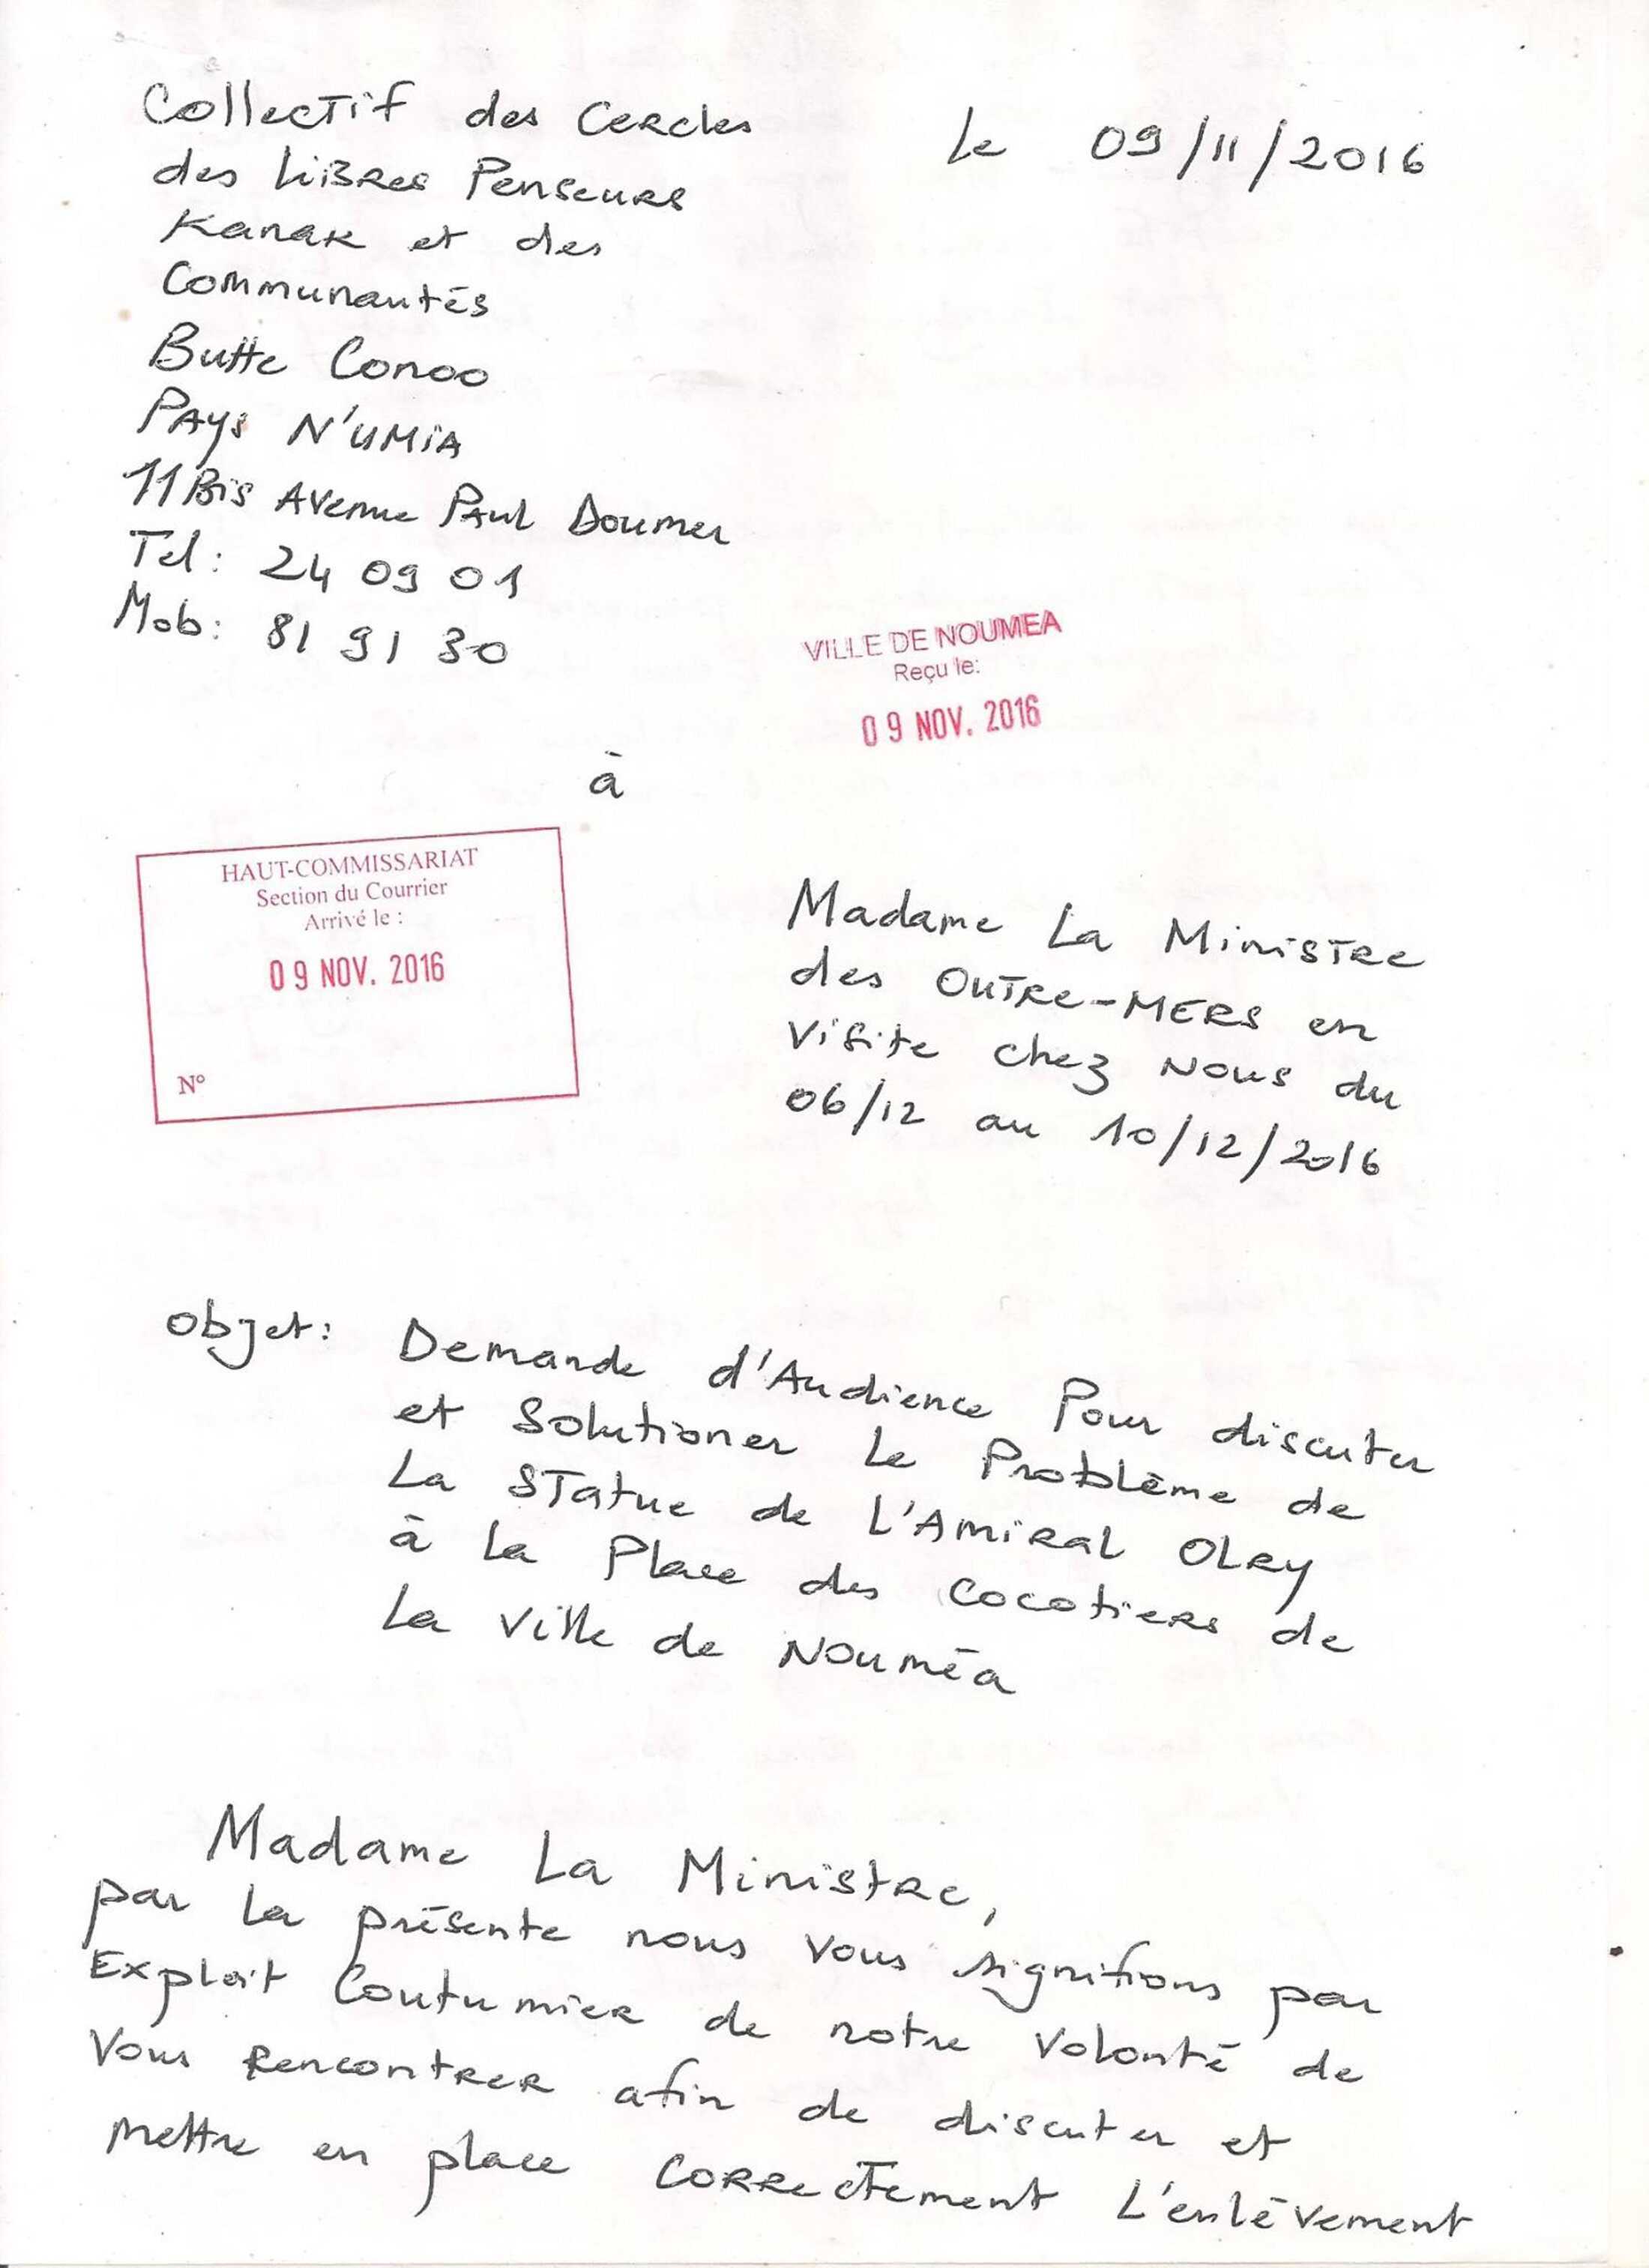 Collectif des Cercles
Le 09/11/2016
des Libres Penseurs
Kanak et des
Communautés
Butte Conoo
Pays N'UMIA
11 Bis Avenue Paul Doumer
Tel: 24 09 01
Mob: 81 91 30
VILLE DE NOUMEA
Reçu le:
09 NOV. 2016
à
HAUT-COMMISSARIAT
Section du Courrier
Arrivé le :
09 NOV. 2016
N°
Madame La Ministre
des OUTRE-MERS en
Visite chez Nous du
06/12 au 10/12/2016
Objet: Demande d'Audience Pour discuter
et Solutioner Le Problème de
La Statue de L'Amiral OLRY
à la Place des Cocotiers de
La Ville de Nouméa
Madame La Ministre,
par La présente nous vous signifions par
Exploit Coutumier de notre Volonté de
Vous Rencontrer afin de discuter et
Mettre en place Correctement L'enlèvement